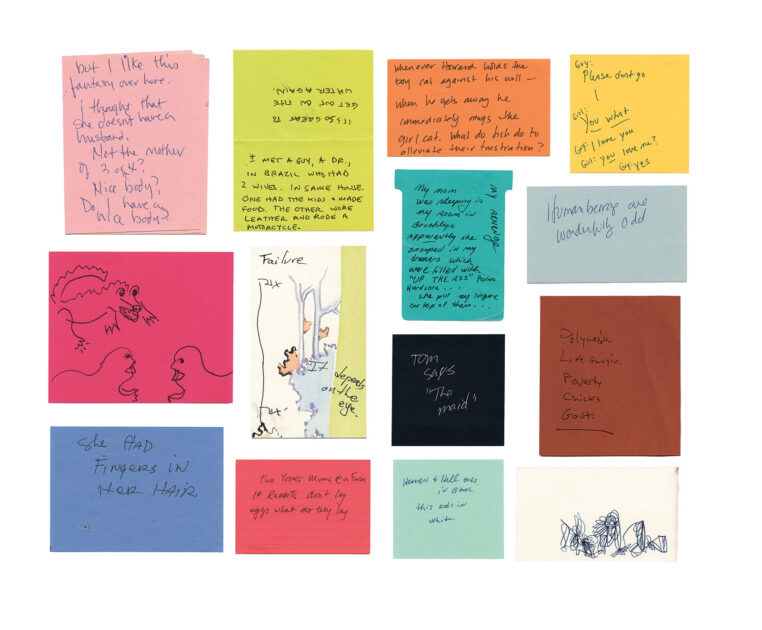 but I like this
fantasy over here.
I thought that
she doesn't have a
husband.
Not the mother
of 3 or 4?
Nice body?
Do I have a
nice body?
IT'S SO GREAT TO
GET OUT ON THE
WATER AGAIN.
I MET A GUY, A DR.,
IN BRAZIL WHO HAD
2 WIVES. IN SAME HOUSE
ONE HAD THE KIDS + MADE
FOOD. THE OTHER WORE
LEATHER AND RODE A
MOTORCYCLE.
whenever Howard holds the
boy cat against his will —
when he gets away he
immediately mugs the
girl cat. What do fish do to
alleviate their frustration?
Guy:
Please dont go
I
Girl:
You what
Guy: I love you
Girl: you love me?
Guy: yes
My mom
was sleeping in
my room in
Brooklyn
apparently she
snooped in my
drawers which
were filled with
"UP THE ASS" Porno
Hardcore...
she put my lingerie
on top of them...
my revenge
Human beings are
wonderfully odd
Failure
It depends
on the
eye.
TOM
says
"The
maid"
Polynesia
Poverty
Chicks
Govt.
She HAD
FINGERS IN
HER HAIR
Two Young Mums @ a Farm
If Rabbits don't lay
eggs what do they lay
Heaven & Hell ends
in
this ends in
white